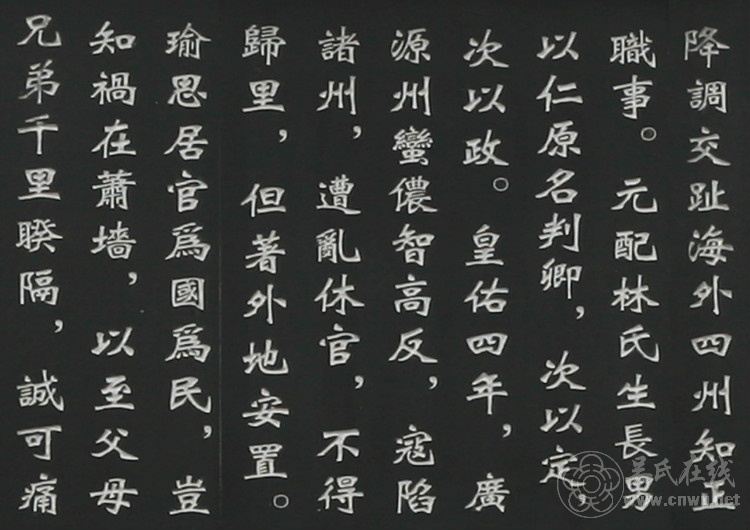 降調交趾海外四州知正
職事。元配林氏生長男
以仁原名判卿,次以定,
次以政。皇佑四年,廣
源州蠻儂智高反,寇陷
諸州,遭亂休官,不得
歸里,但著外地安置。
瑜思居官爲國爲民,豈
知禍在蕭墻,以至父母
兄弟千里睽隔,誠可痛
吴氏在线
www.cnwu.net